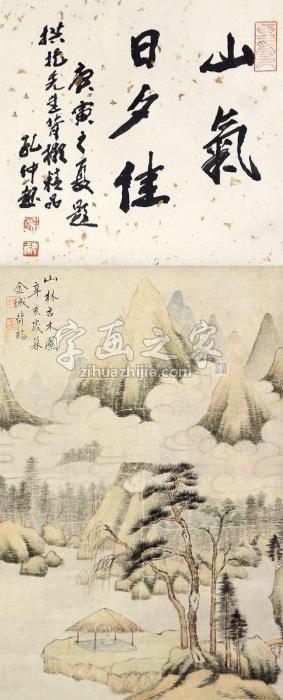 山氣
日夕佳
庚寅之夏題
拱北先生背擬精品
孔仲起
山林古木圖
辛亥歲暮
金城背臨
字画之家
zihuazhijia.com